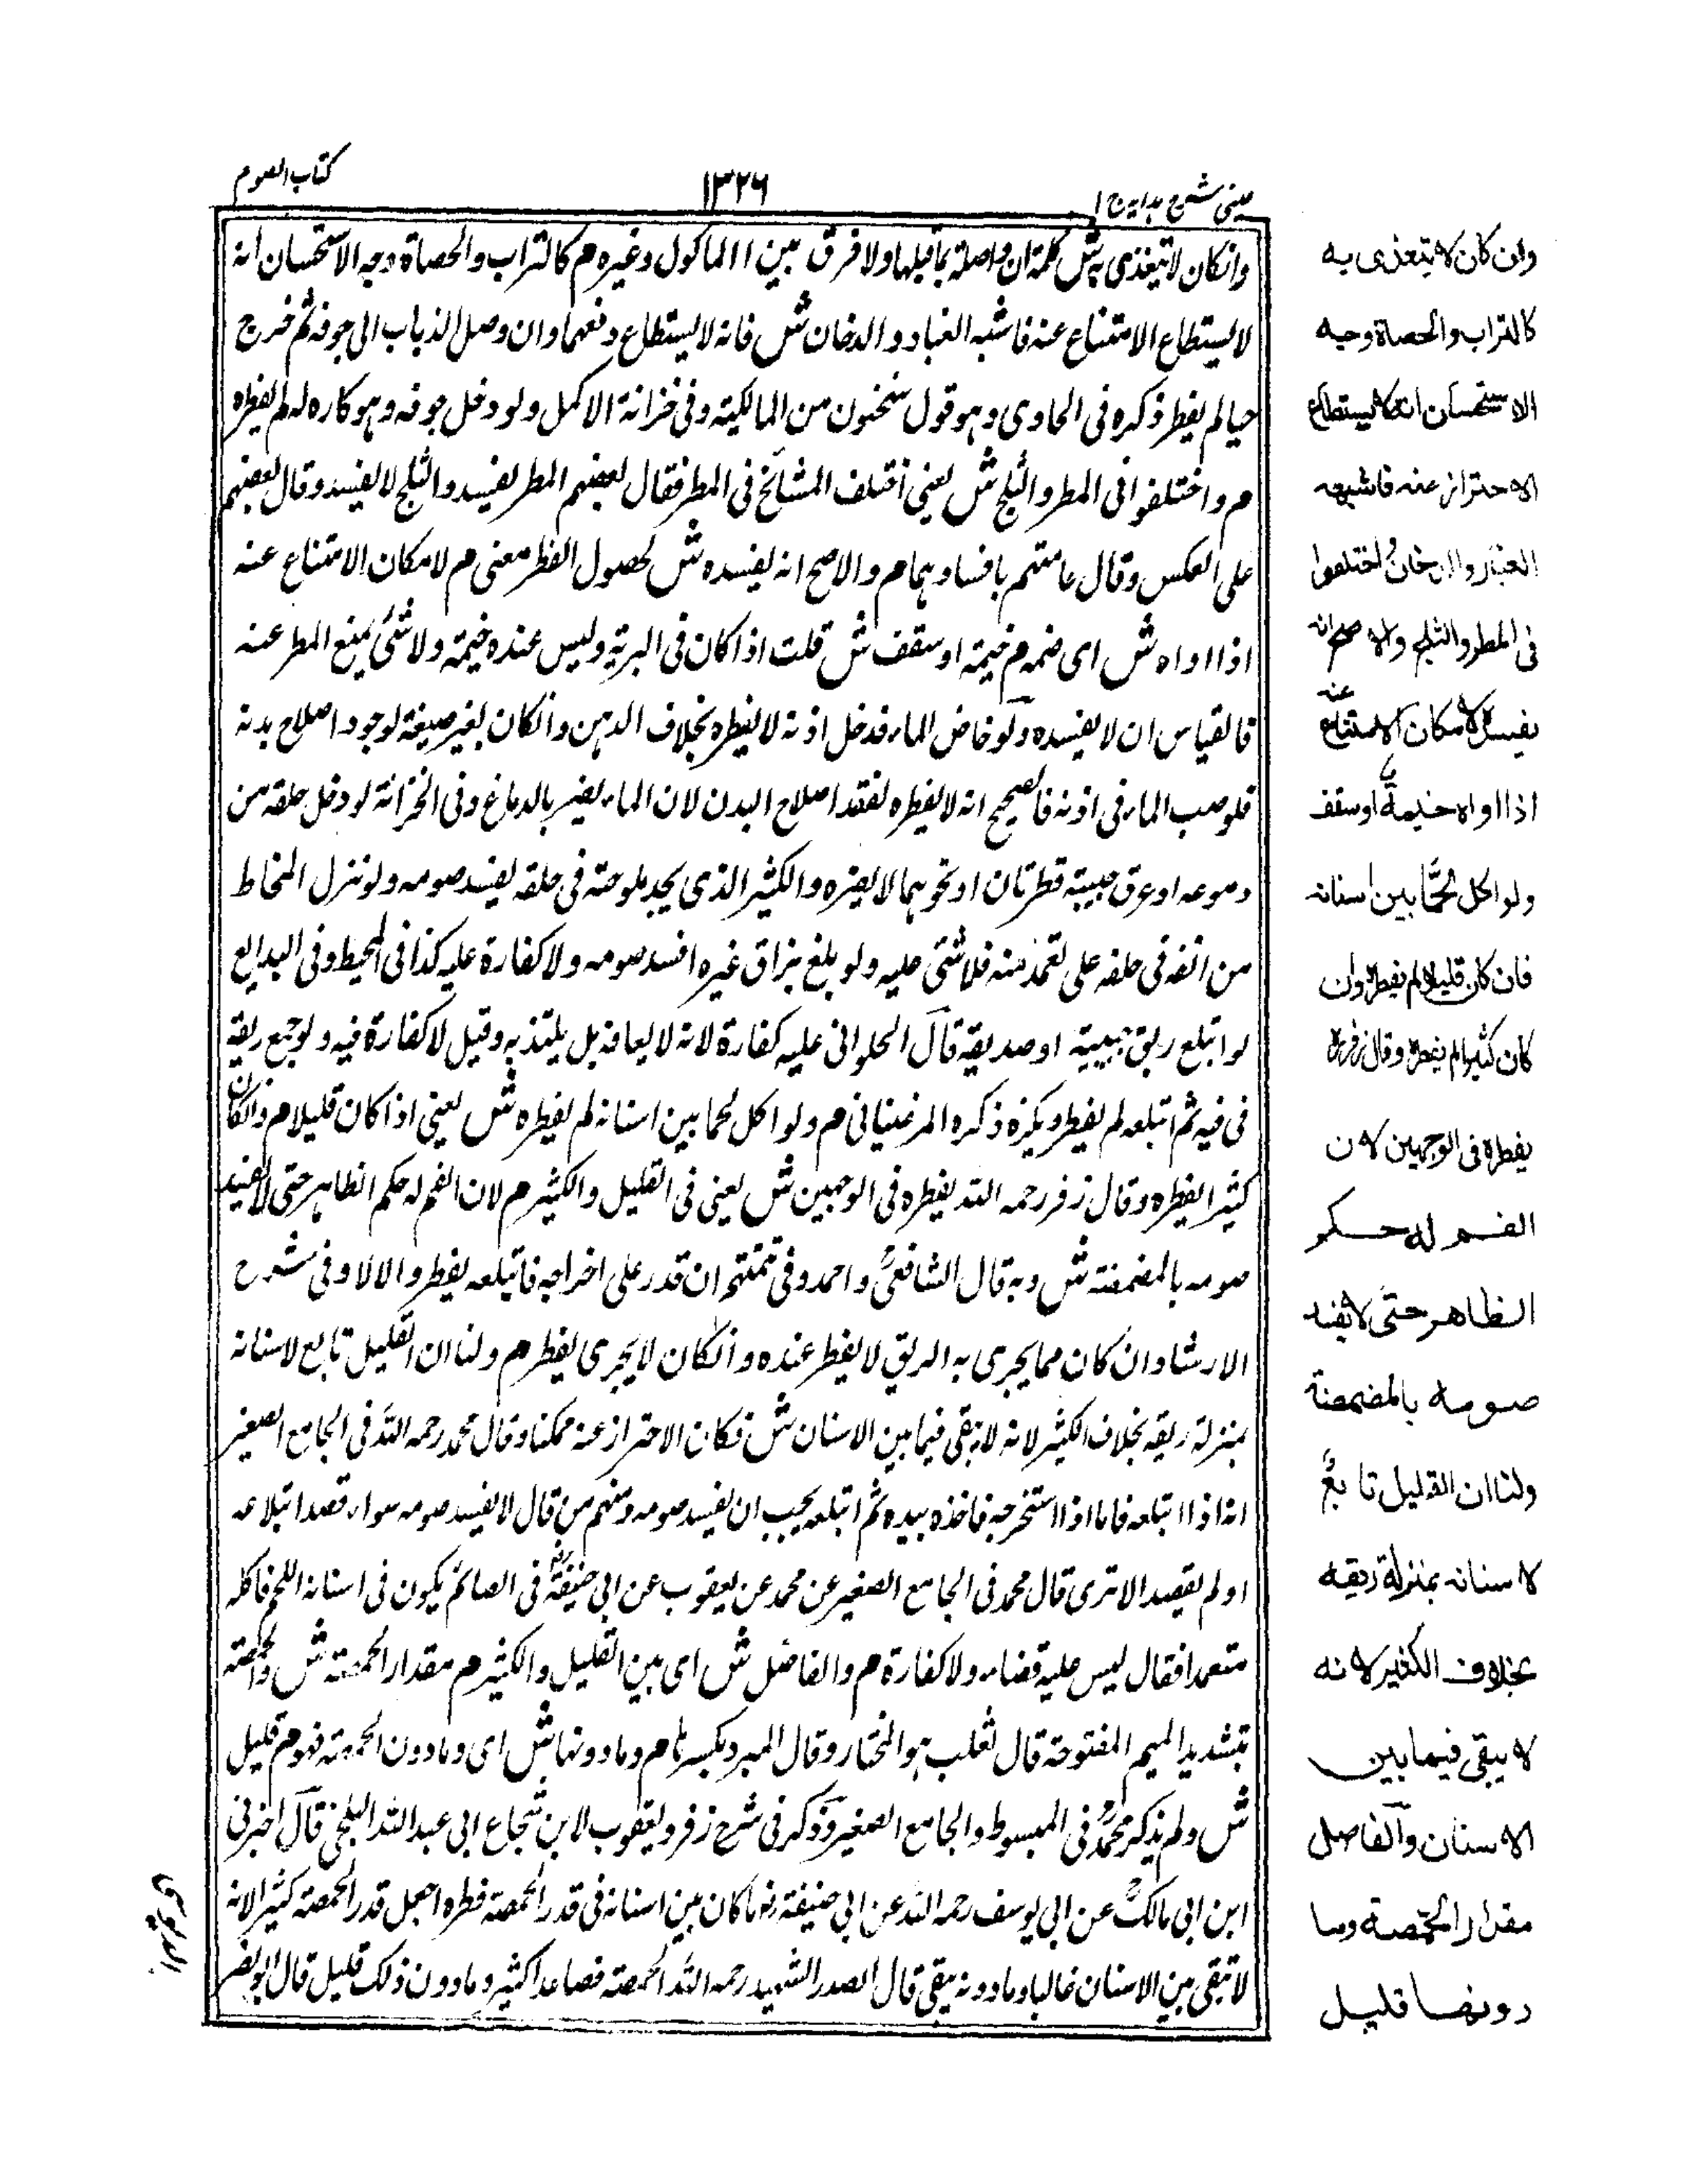 عینی شرح ہدایہ ج ۱
۱۳۲۶
کتاب الصوم
وانکان لا یتغذی بہ ش کلمۃ ان واصلۃ بما قبلہا ولا فرق بین االماکول وغیرہ م کالتراب والحصاۃ وجہ الاستحسان انہ
لا یستطاع الامتناع عنہ فاشبہ الغبار والدخان ش فانہ لا یستطاع دفعہما وان وصل الذباب الی جوفہ ثم خرج
حیا لم یفطر ذکرہ فی الحاوی وہو قول سحنون من المالکیۃ وفی خزانۃ الاکمل ولو دخل جوفہ وہو کارہ لہ لم یفطرہ
م واختلفوا فی المطر والثلج ش یعنی اختلف المشائخ فی المطر فقال بعضہم المطر یفسد والثلج لا یفسد وقال بعضہم
علی العکس وقال عامتہم بافسادہما م والاصح انہ یفسدہ ش لحصول الفطر معنی م لامکان الامتناع عنہ
اذا اواہ ش ای ضمہ م خیمۃ او سقف ش قلت اذا کان فی البریۃ ولیس عندہ خیمۃ ولا شئی یمنع المطر عنہ
فالقیاس ان لا یفسدہ ولو خاض الماء فدخل اذنہ لا یفطرہ بخلاف الدہن وانکان بغیر صیغۃ لوجود اصلاح بدنہ
فلو صب الماء فی اذنہ فالصحیح انہ لا یفطرہ لفقد اصلاح البدن لان الماء یضر بالدماغ وفی الخزانۃ لو دخل حلقہ من
دموعہ او عرق جبینہ قطرتان او نحوہما لا یضرہ والکثیر الذی یجد ملوحتہ فی حلقہ یفسد صومہ ولو نزل المخاط
من انفہ فی حلقہ علی تعمد منہ فلا شئی علیہ ولو بلغ بزاق غیرہ افسد صومہ ولا کفارۃ علیہ کذا فی المحیط وفی البدایع
لو ابتلع ریق حبیبہ او صدیقہ قال الحلوانی علیہ کفارۃ لانہ لا یعافہ بل یلتذ بہ وقیل لا کفارۃ فیہ ولو جمع ریقہ
فی فیہ ثم ابتلعہ لم یفطر ویکرہ ذکرہ المرغینانی م ولو اکل لحما بین اسنانہ لم یفطرہ ش یعنی اذا کان قلیلا م وان کان
کثیرا یفطرہ وقال زفر رحمہ اللہ یفطرہ فی الوجہین ش یعنی فی القلیل والکثیر م لان الفم لہ حکم الظاہر حتی لا یفسد
صومہ بالمضمضۃ ش وبہ قال الشافعیؒ واحمد وفی تتمتہم ان قدر علی اخراجہ فابتلعہ یفطر والا لا وفی شرح
الارشاد ان کان مما یجری بہ الریق لا یفطر عندہ وانکان لا یجری یفطر م ولنا ان القلیل تابع لاسنانہ
بمنزلۃ ریقہ بخلاف الکثیر لانہ لا یبقی فیما بین الاسنان ش فکان الاحتراز عنہ ممکنا وقال محمد رحمہ اللہ فی الجامع الصغیر
انہ اذا ابتلعہ فاما اذا استخرجہ فاخذہ بیدہ ثم ابتلعہ یجب ان یفسد صومہ ومنہم من قال لا یفسد صومہ سواء قصد ابتلاعہ
او لم یقصد الا تری قال محمد فی الجامع الصغیر عن محمد عن یعقوب عن ابی حنیفۃ فی الصائم یکون فی اسنانہ اللحم فاکلہ
متعمدا فقال لیس علیہ قضاء ولا کفارۃ م والفاصل ش ای بین القلیل والکثیر م مقدار الحمصۃ ش والحمصۃ
بتشدید المیم المفتوحۃ قال ثعلب ہو المختار وقال المبرد بکسرہا م وما دونہا ش ای وما دون الحمصۃ فہو م قلیل
ش ولم یذکر محمدؒ فی المبسوط والجامع الصغیر وذکر فی شرح زفر ویعقوب لابن شجاع ابی عبد اللہ البلخی قال اخبرنی
ابن ابی مالکؒ عن ابی یوسف رحمہ اللہ عن ابی حنیفۃ رہ ما کان بین اسنانہ فی قدر الحمصۃ فطرہ اجعل قدر الحمصۃ کثیرا لانہ
لا تبقی بین الاسنان غالبا وما دونہ یبقی قال الصدر الشہید رحمہ اللہ الحمصۃ فصاعدا کثیر وما دون ذلک قلیل قال ابو نصر
وان کان لا یتغذی بہ
کالتراب والحصاۃ وجہ
الاستحسان انہ لا یستطاع
الاحتراز عنہ فاشبہ
الغبار والدخان واختلفوا
فی المطر والثلج والاصح انہ
یفسد لامکان الامتناع عنہ
اذا اواہ خیمۃ او سقف
ولو اکل لحمًا بین اسنانہ
فان کان قلیلا لم یفطرہ وان
کان کثیرا لم یفطرہ وقال زفرؒ
یفطرہ فی الوجہین لان
الفم لہ حکم
الظاہر حتی لا یفسد
صومہ بالمضمضۃ
ولنا ان القلیل تابعٌ
لاسنانہ بمنزلۃ ریقہ
بخلاف الکثیر لانہ
لا یبقی فیما بین
الاسنان والفاصل
مقدار الحمّصۃ وما
دونھا قلیل